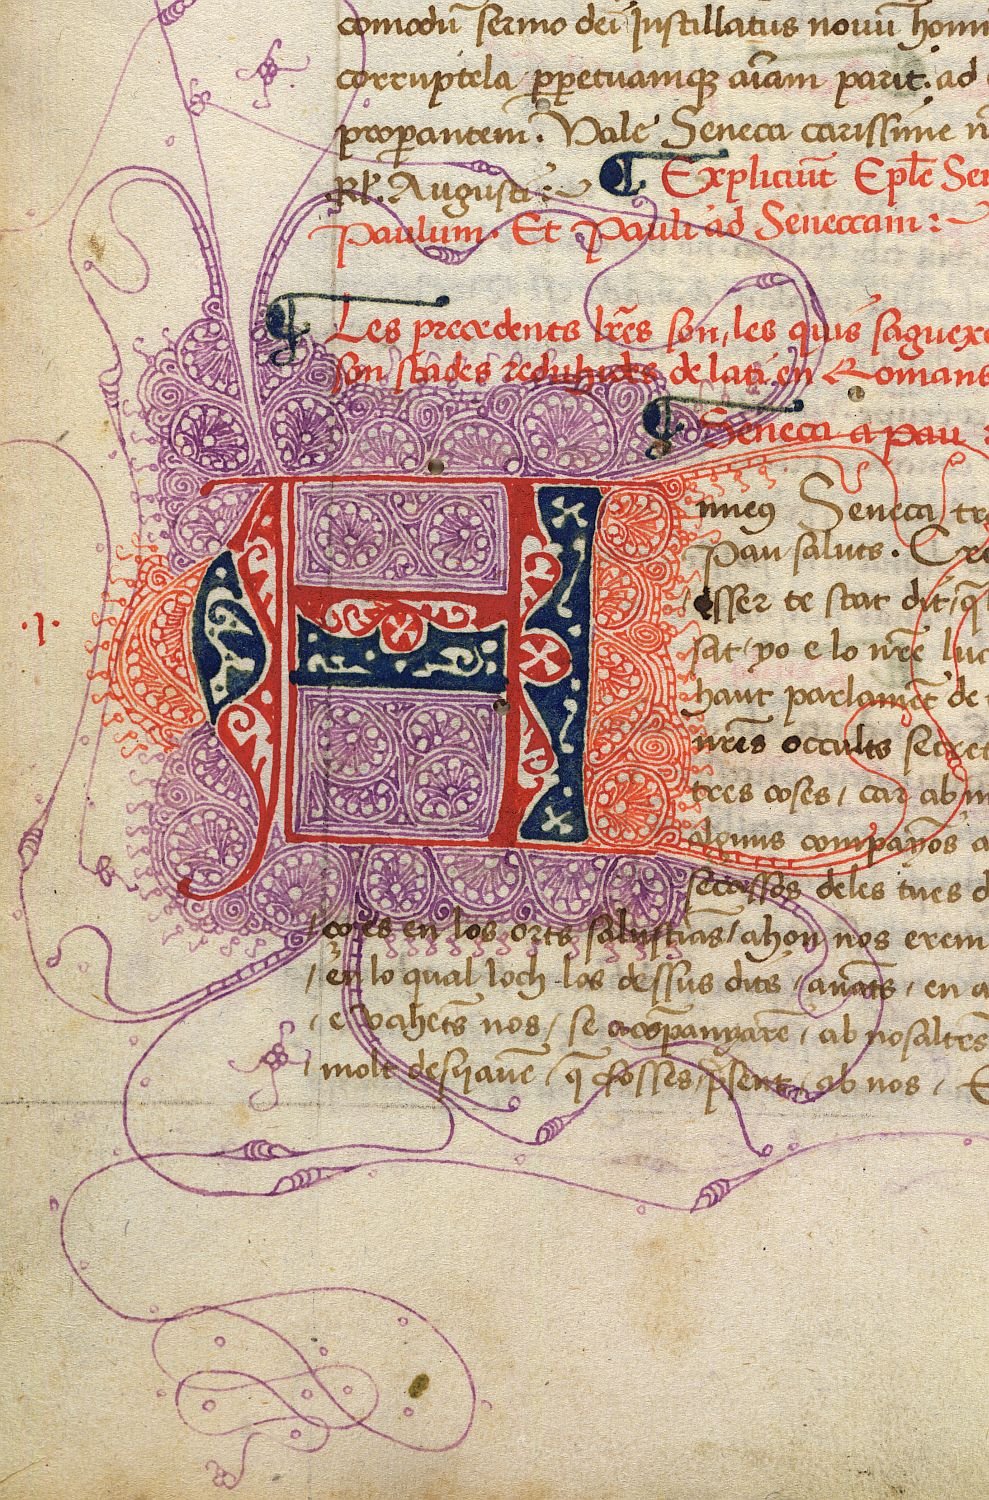 comodū sermo dei Instillatus novū homi
corruptela ꝑpetuamqꝫ aīam parit. ad
properantem. Vale Seneca carissime
kł. Augusti.
¶ Expliciūt Epłe Sen
Paulum. Et Pauli ad Seneccam:
¶ Les precedents lr̄es son, les quis saguexe
son stades reduhides de latī en Romans
¶ Seneca a pau:
nneꝯ Seneca tr
Pau saluts. Cre
esser te stat dit, q̄
sat, yo e lo nr̄e luc
haut parlamēt de
nr̄es occults secret
tres coses, car ab m
alguns companyos a
secasses deles tues d
.I.
ço es en los orts salustiās, ahon nos erem
en lo qual loch los dessus dits, anāts, en a
e vahēts nos, se acōpanyarē, ab nosaltres
molt desijauē, q̄ fosses, p̄sent, ab nos, E